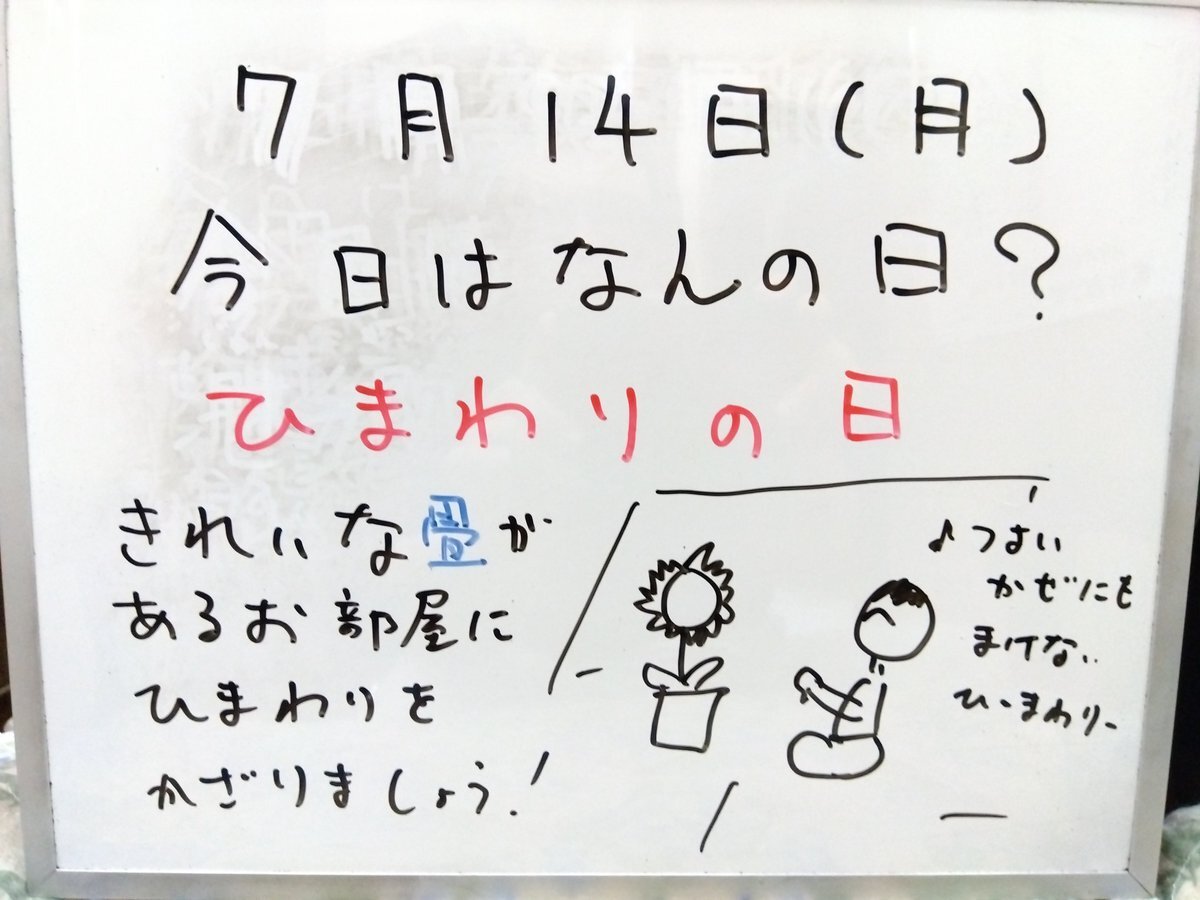 7月14日(月)
今日はなんの日?
ひまわりの日
きれいな畳が
あるお部屋に
ひまわりを
かざりましょう!
♪つよい
かぜにも
まけない
ひーまわりー